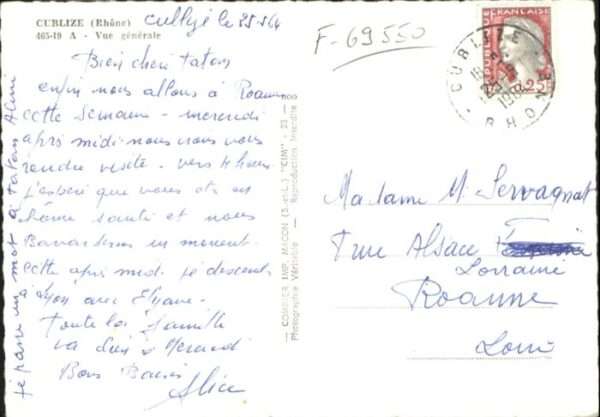 CUBLIZE (Rhône)
465-19 A - Vue générale
cublize le 25-8-64
Bien chère tatan
enfin nous allons à Roanne
cette Semaine - mercredi
après midi nous vous
rendre visite - vers 4 heures
j'espère que vous êtes en
bonne santé et nous
Bavarderons un moment
cette après midi je descends
Lyon avec
toute la famille
va
Bons Baisers
Alice
je passe un mot à tatan
COMBIER IMP. MACON (S.-et-L.) "CIM"
Photographie Véritable - Reproduction Interdite
F-69550
REPUBLIQUE FRANÇAISE
0,25
CUBLIZE
RHONE
Madame M. Servagnat
7 rue Alsace
Lorraine
Roanne
Loire